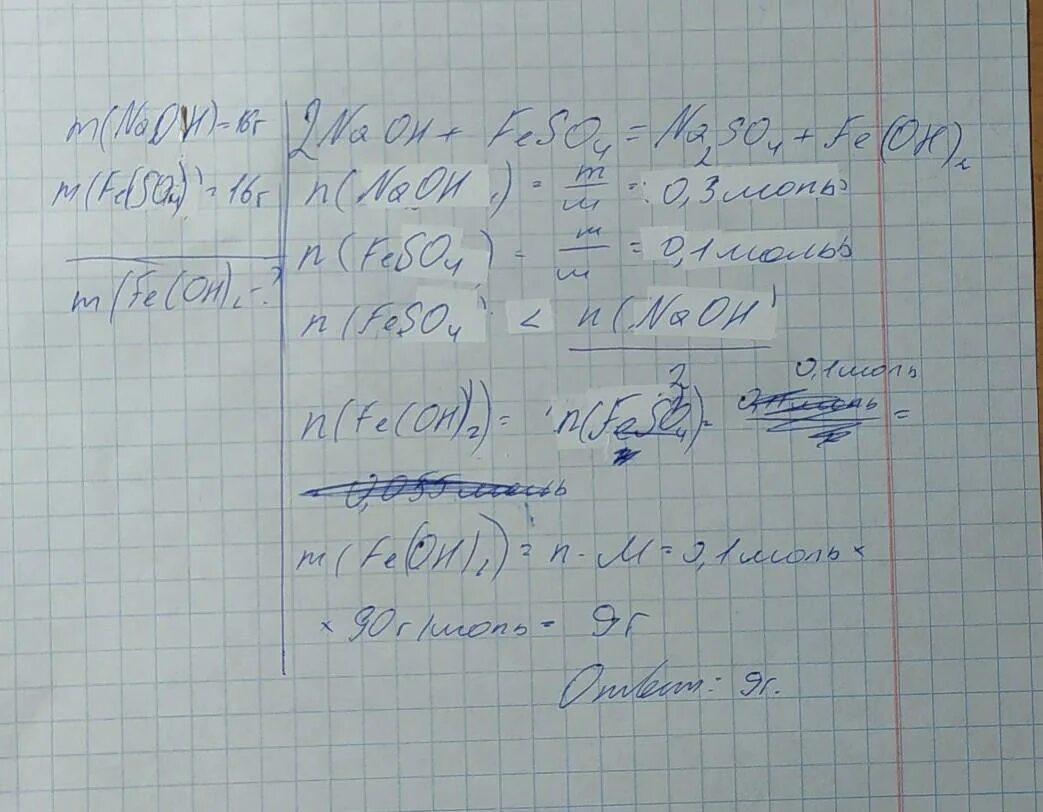 m(NaOH)=16г
m(FeSO₄)=16г
m(Fe(OH)₂-?
2NaOH + FeSO₄ = Na₂SO₄ + Fe(OH)₂
n(NaOH) = m/м = 0,3моль
n(FeSO₄) = m/м = 0,1моль
n(FeSO₄) < n(NaOH)
2
0,1моль
n(Fe(OH)₂) = n(FeSO₄) =
=
m(Fe(OH)₂) = n · M = 0,1моль ×
× 90г/моль = 9г
Ответ: 9г.